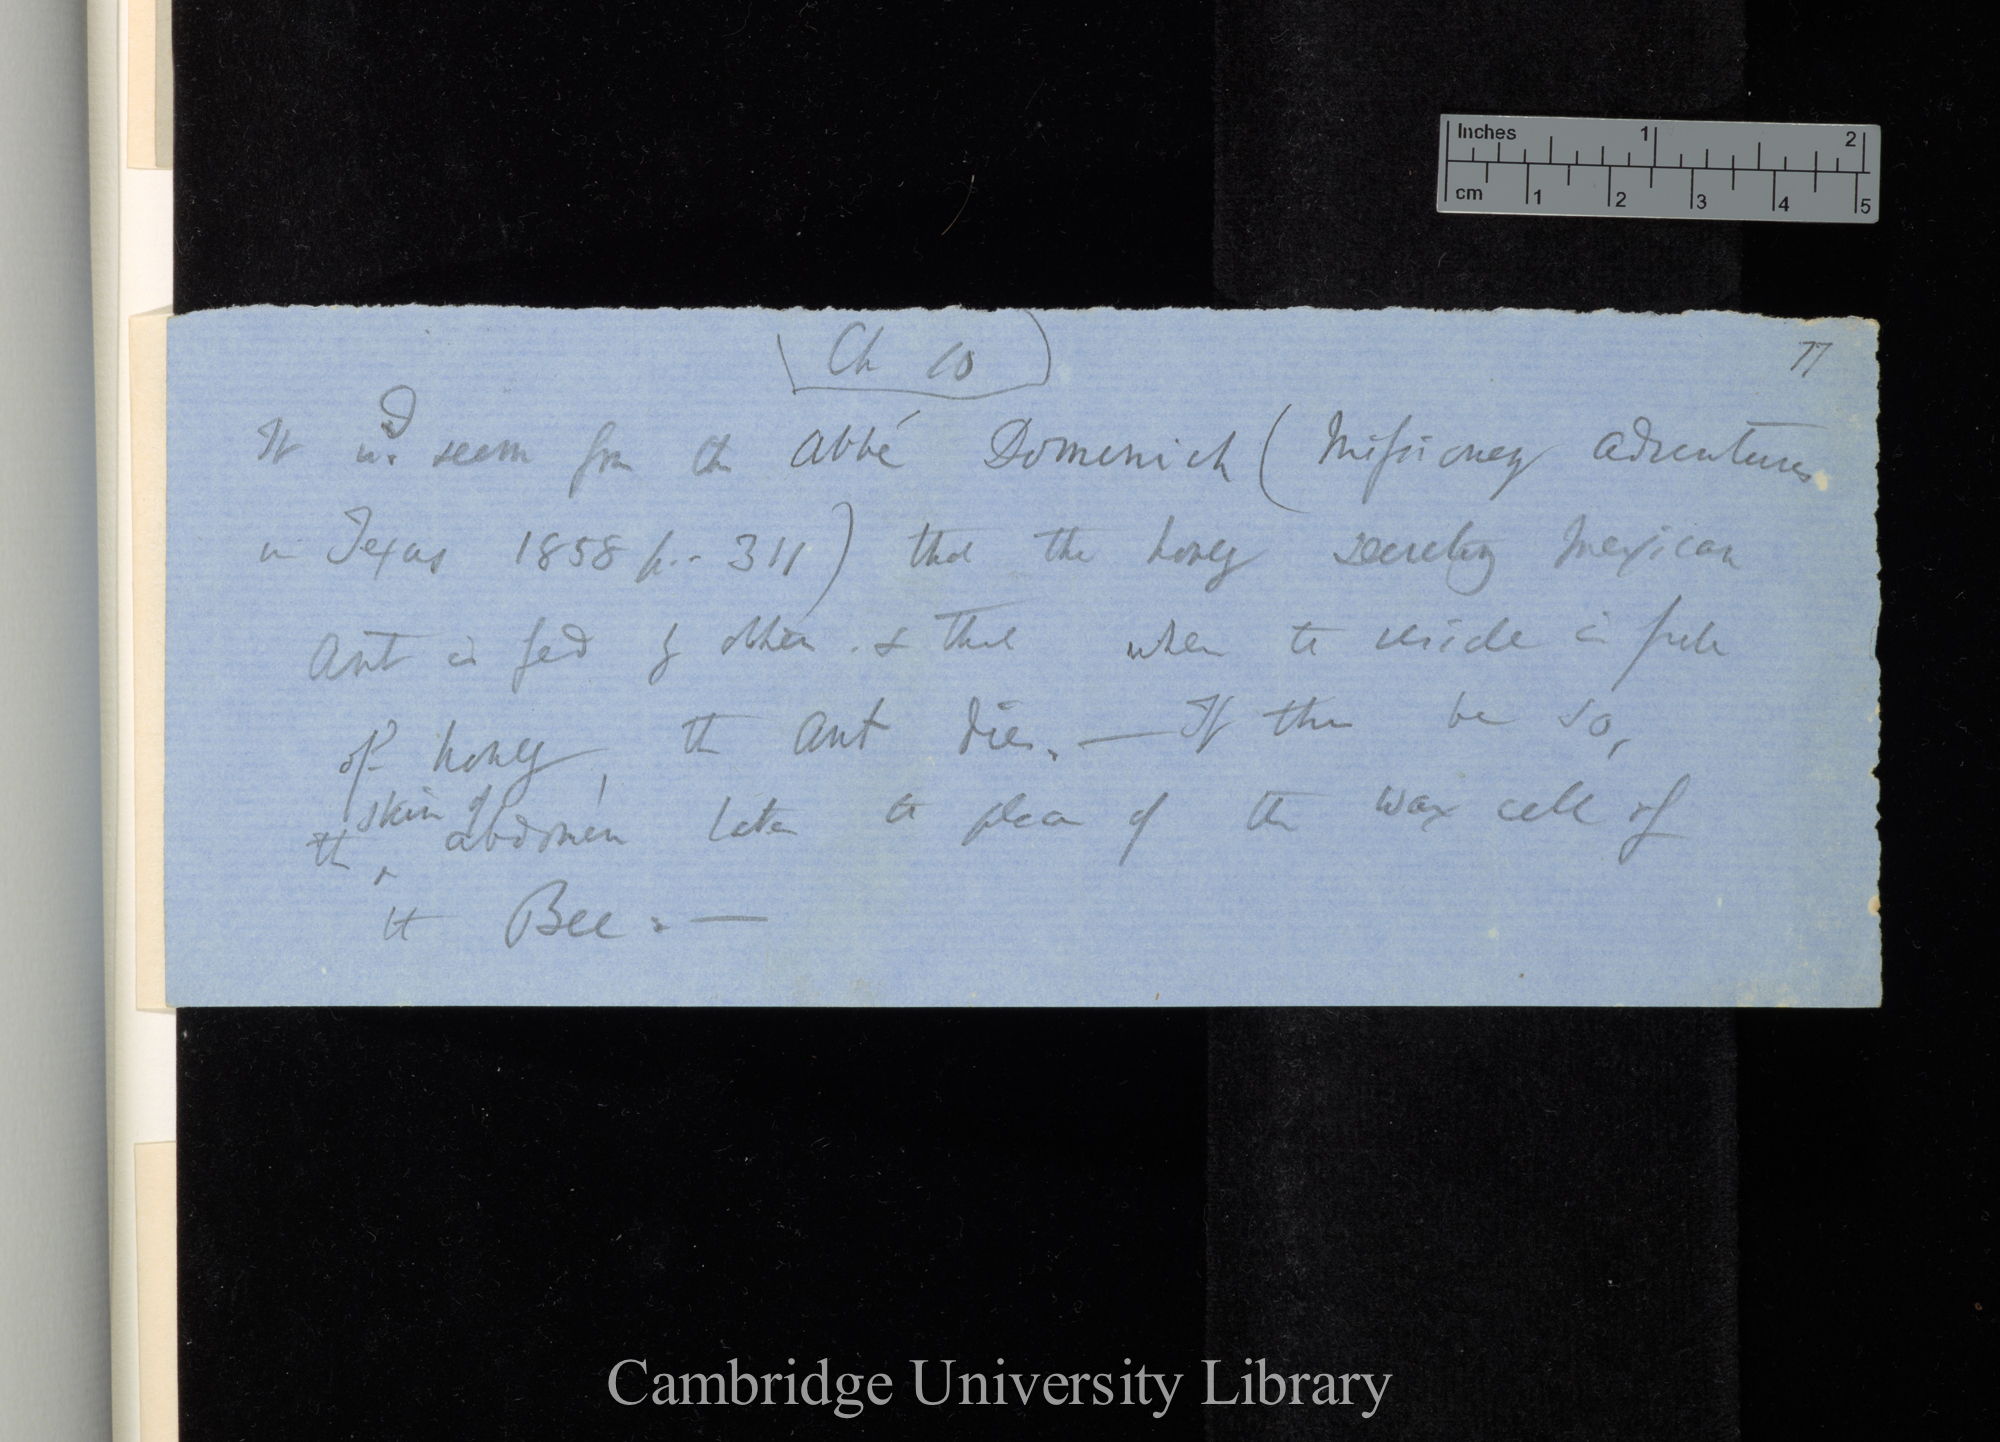 Inches 1 2
cm 1 2 3 4 5
Ch 10
77
It wd. seem from the Abbé Domenech (Missionary Adventures
in Texas 1858 p. 311) that the honey secreting Mexican
Ant is fed by others & that when the inside is full
of honey, the Ant dies. — If this be so,
the skin of abdomen takes the place of the wax cell of
the Bee. —
Cambridge University Library